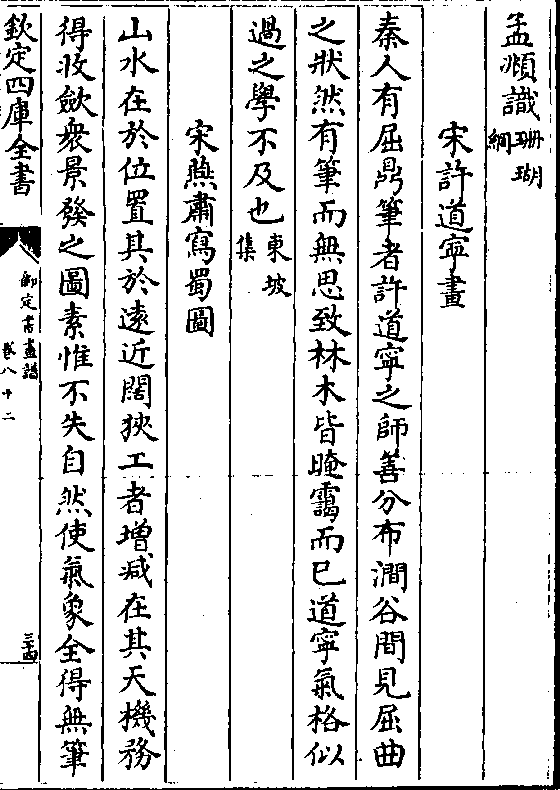 孟頫識珊瑚網
宋許道寧畫
秦人有屈鼎筆者許道寧之師善分布澗谷間見屈曲
之狀然有筆而無思致林木皆晻靄而已道寧氣格似
過之學不及也東坡集
宋燕肅寫蜀圖
山水在於位置其於逺近闊狹工者増减在其天機務
得收斂衆景發之圖素惟不失自然使氣象全得無筆
欽定四庫全書
御定書畫譜
卷八十二
三古